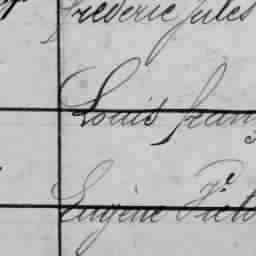 frédéric Jules
Louis franç
Eugène Victo